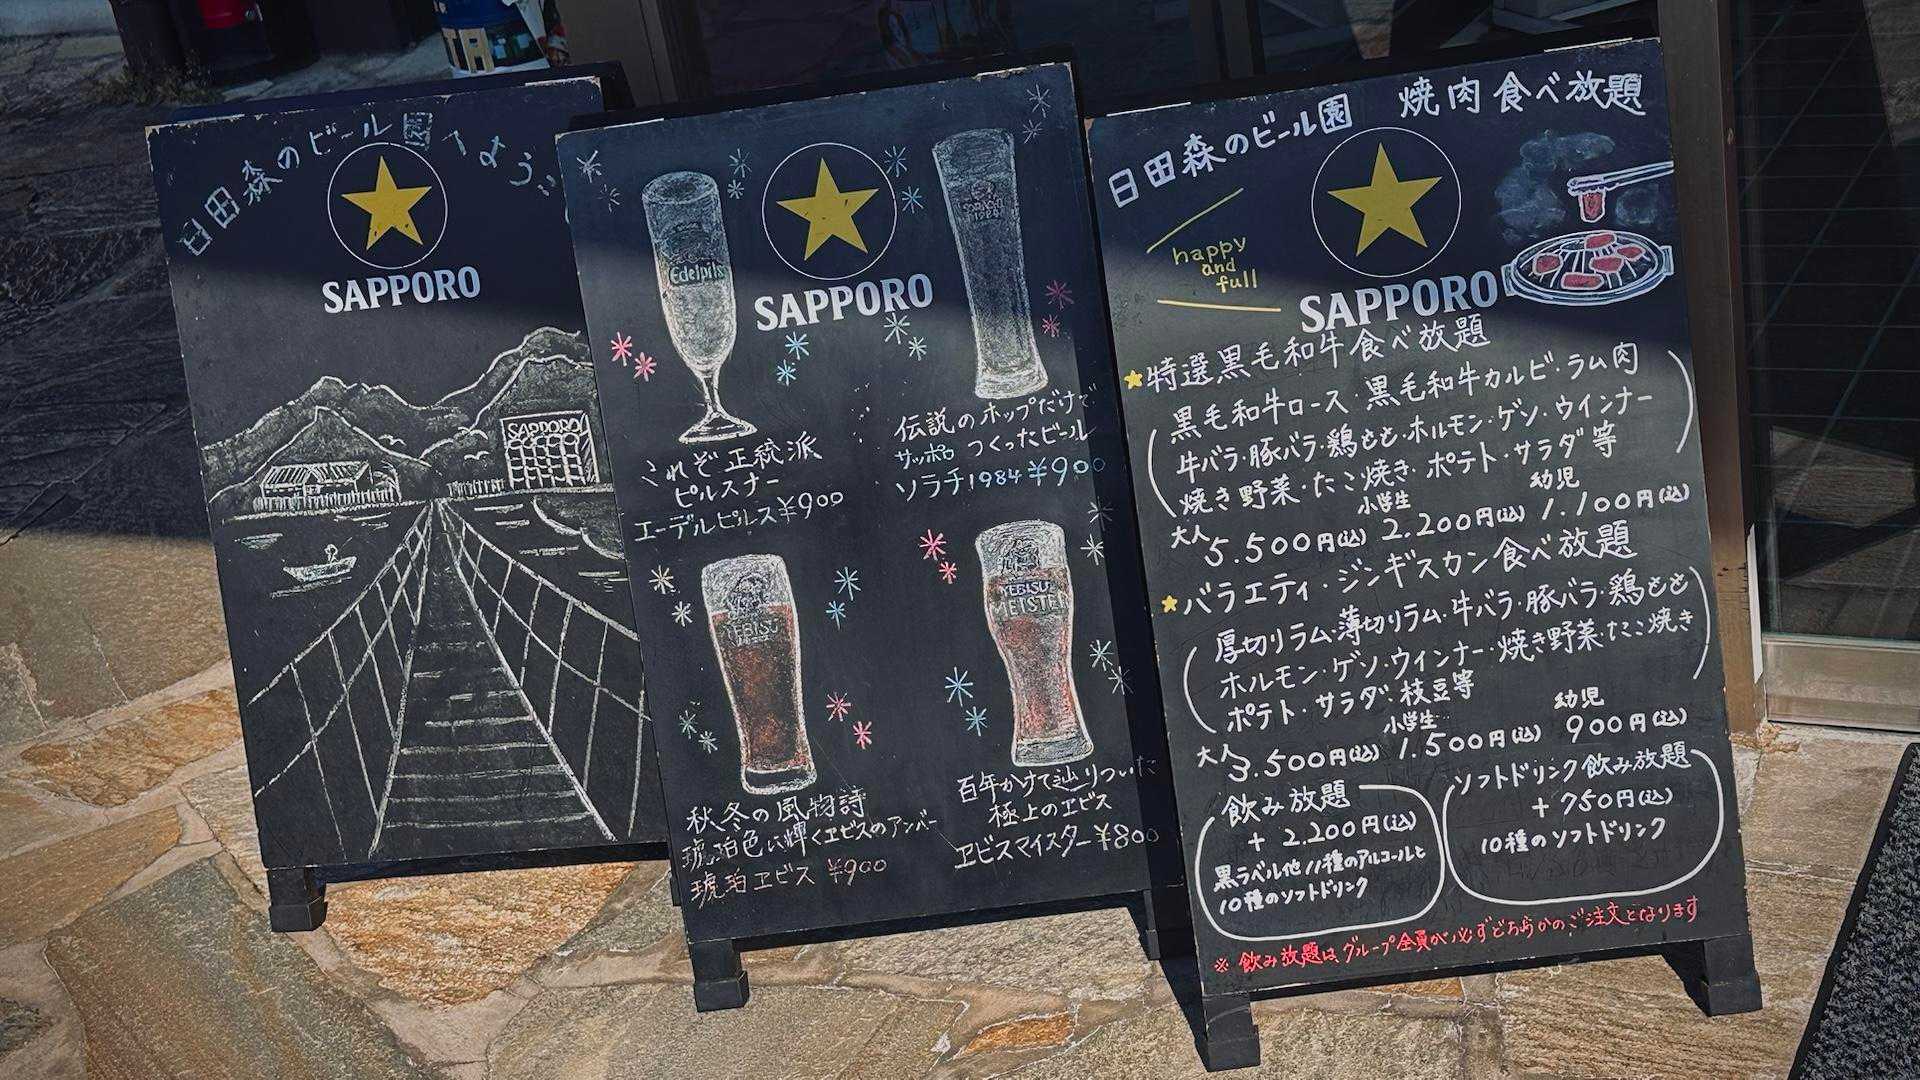 日田森のビール園へようこそ
SAPPORO
SAPPORO
SAPPORO
Edelpils
これぞ正統派
ピルスナー
エーデルピルス¥900
SORACHI
1984
伝説のホップだけで
サッポロ つくったビール
ソラチ1984 ¥900
YEBISU
秋冬の風物詩
琥珀色に輝くヱビスのアンバー
琥珀ヱビス ¥900
YEBISU
MEISTER
百年かけて辿りついた
極上のヱビス
ヱビスマイスター¥800
日田森のビール園 焼肉食べ放題
happy
and
full
SAPPORO
特選黒毛和牛食べ放題
黒毛和牛ロース・黒毛和牛カルビ・ラム肉
牛バラ・豚バラ・鶏もも・ホルモン・ゲソ・ウインナー
焼き野菜・たこ焼き・ポテト・サラダ等
大人 5.500円(込) 小学生 2.200円(込) 幼児 1.100円(込)
バラエティ・ジンギスカン食べ放題
厚切りラム・薄切りラム・牛バラ・豚バラ・鶏もも
ホルモン・ゲソ・ウィンナー・焼き野菜・たこ焼き
ポテト・サラダ・枝豆等
大人 3.500円(込) 小学生 1.500円(込) 幼児 900円(込)
飲み放題
+2.200円(込)
黒ラベル他11種のアルコールと
10種のソフトドリンク
ソフトドリンク飲み放題
+750円(込)
10種のソフトドリンク
※飲み放題はグループ全員が必ずどちらかのご注文となります